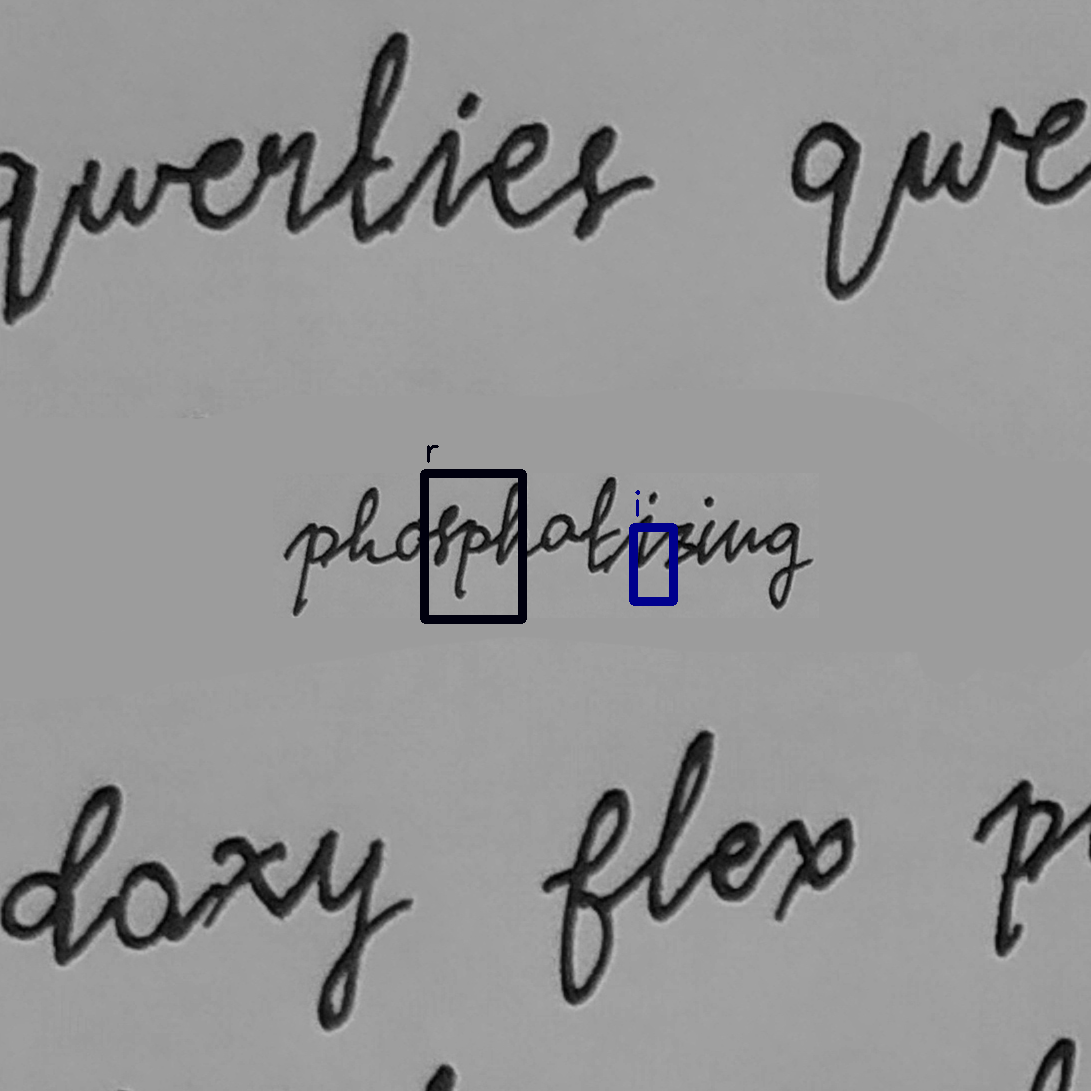 querties qwe
r i
phosphatizing
doxy flex p